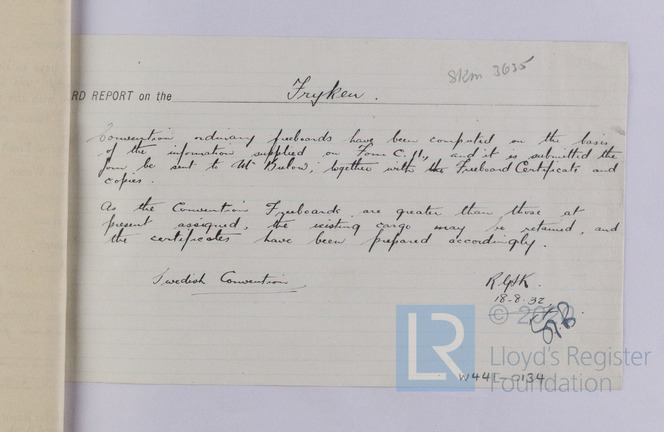 Skm 3635
RD REPORT on the Fryken.
Convention ordinary freeboards have been computed on the basis
of the information supplied on Form C.11, and it is submitted the
form be sent to Mr Buelow, together with the Freeboard Certificate and
copies.
As the Convention Freeboards are greater than those at
present assigned, the existing cargo may be retained, and
the certificates have been prepared accordingly.
Swedish Convention
18-8-32
© 202
LR
Lloyd's Register
Foundation
W441-0134